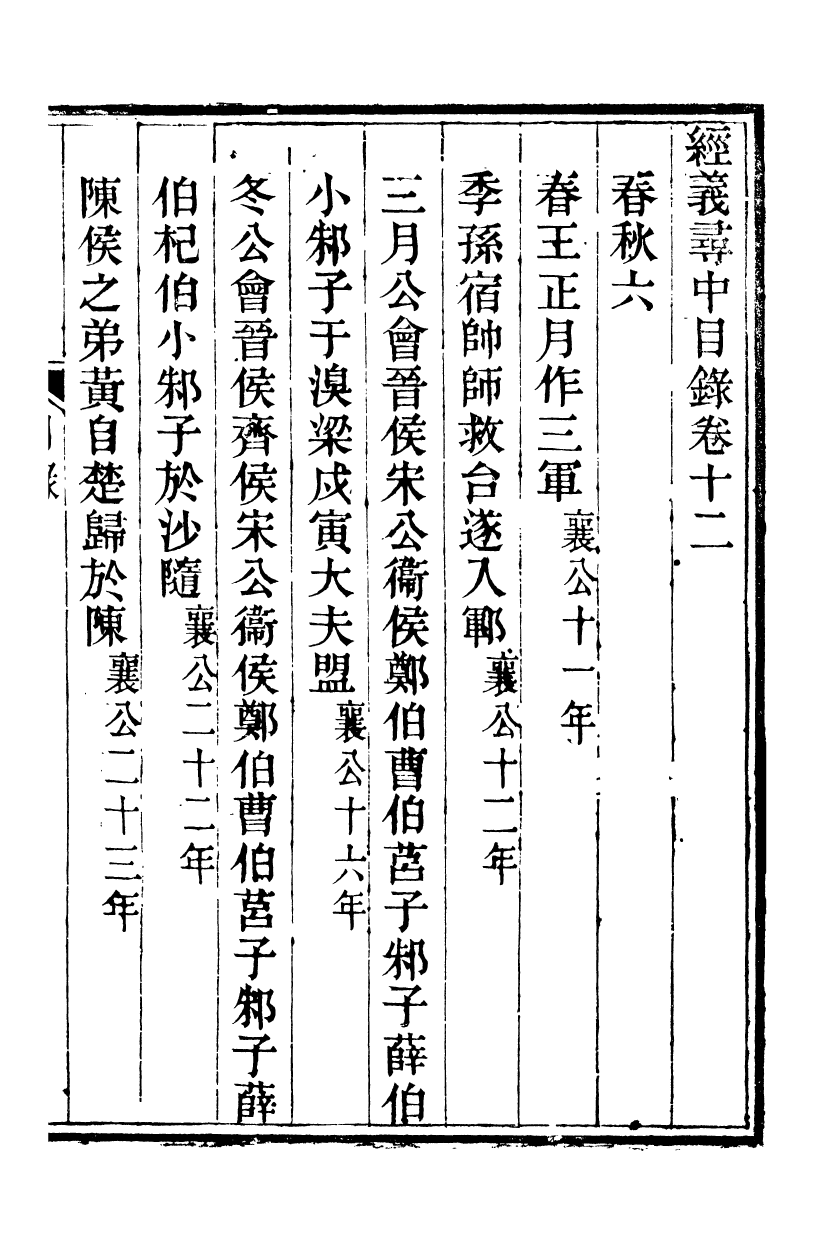 經義尋中目錄卷十二
春秋六
春王正月作三軍 襄公十一年
季孫宿帥師救台遂入鄆 襄公十二年
三月公會晉侯宋公衞侯鄭伯曹伯莒子邾子薛伯
小邾子于溴梁戍寅大夫盟 襄公十六年
冬公會晉侯齊侯宋公衞侯鄭伯曹伯莒子邾子薛
伯杞伯小邾子於沙隨 襄公二十二年
陳侯之弟黃自楚歸於陳 襄公二十三年